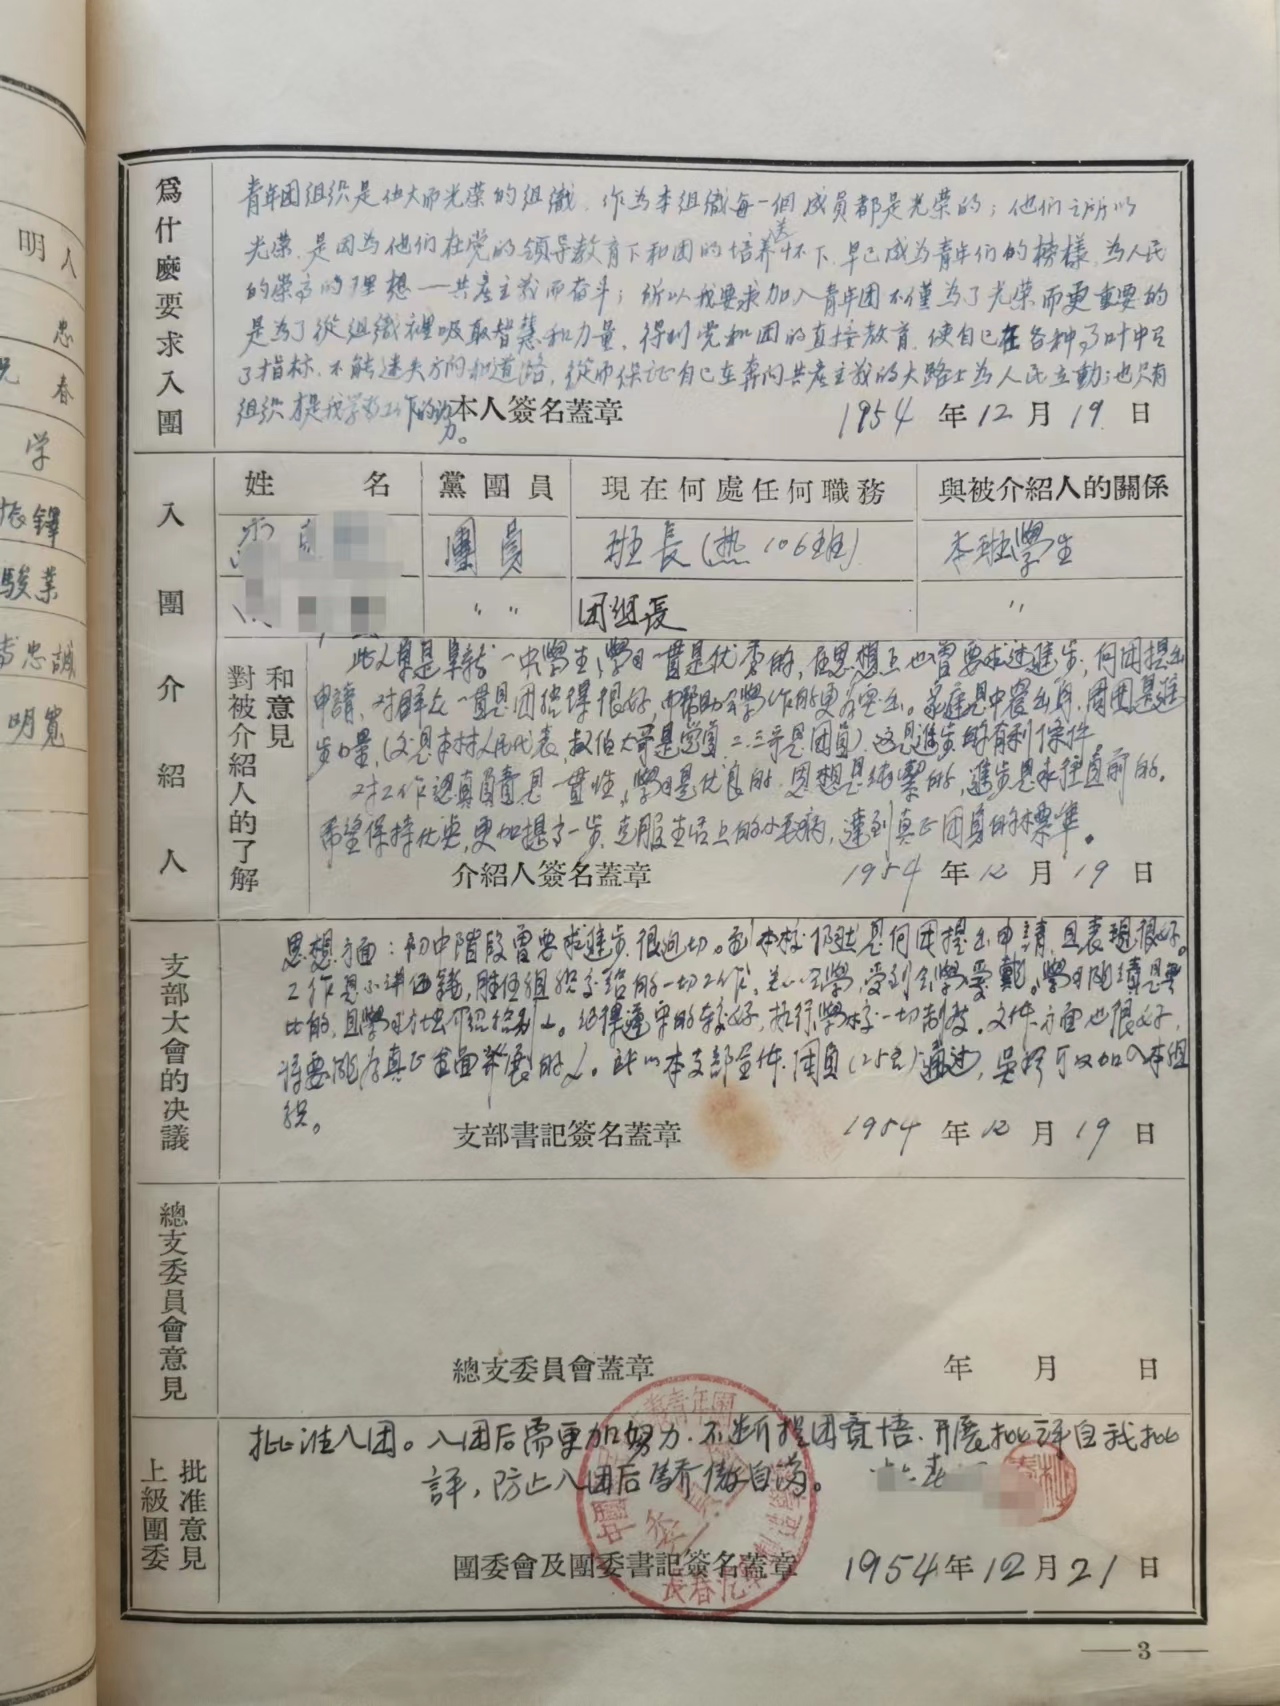 明 人
忠
春
学
振鐸
駿業
忠誠
明寬
為什麼要求入團
青年团组织是伟大而光荣的组織，作为本组織每一個成员都是光荣的；他们之所以
光荣，是因为他们在党的领导教育下和团的培养怀下，早已成为青年们的榜樣，为人民
的崇高的理想——共產主義而奋斗；所以我要求加入青年团不僅为了光荣而更重要的
是为了從组織裡吸取智慧和力量，得到党和团的直接教育，使自己在各种
了指标，不能迷失方向和道路，從而保证自己在奔向共產主義的大路上为人民立動；也只有
组织才是我学習工作的
本人簽名蓋章 1954 年 12 月 19 日
入團介紹人
姓 名 黨團員 現在何處任何職務 與被介紹人的關係
團員 班長（热106班） 本班學生
〃 〃 团组長 〃
對被介紹人的了解和意見
此人原是阜新一中學生，學習一貫是优秀的，在思想上也曾要求过進步，向团提出
申請，对群众一貫是团结得很好，而帮助同學作的更为突出。家庭是中農出身，周围是進
步力量，（父是本村人民代表，叔伯大哥是党員，二、三哥是团員），这是進步的有利條件
对工作認真負責是一貫性，學習是优良的，思想是純潔的，進步是永往直前的。
希望保持优点，更加提高一步，克服生活上的小毛病，達到真正团員的标準。
介紹人簽名蓋章 1954 年 12 月 19 日
支部大會的决議
思想方面：初中階段曾要求進步，很迫切。到本校仍然是向团提出申請，且表現很好。
工作是不講価錢，勝任组织交给的一切工作，关心同學，受到同學愛戴。學習成績是無
比的，且學習方法介紹给别人。纪律遵守的较好，执行學校一切制度。文体方面也很好，
将要成为真正全面發展的人。所以本支部全体团員（25名）通过，吳 可以加入本组
织。
支部書記簽名蓋章 1954 年 12 月 19 日
總支委員會意見
總支委員會蓋章 年 月 日
上級團委批准意見
批准入团。入团后需更加努力，不断提团意悟，开展批評自我批
評，防止入团后骄傲自满。
團委會及團委書記簽名蓋章 1954 年 12 月 21 日
長春汽
3